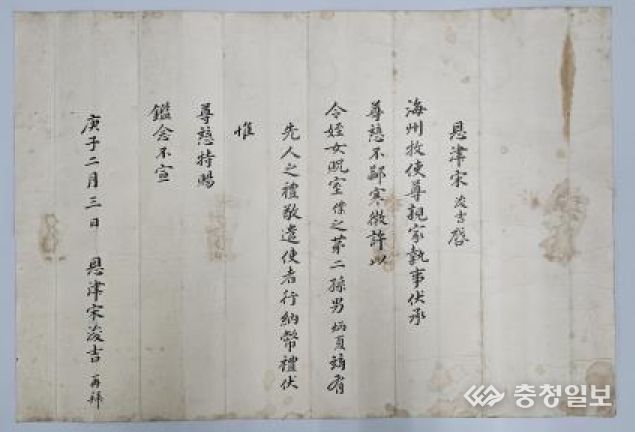 恩津宋 浚吉 啓
海州牧使尊親家執事伏承
尊慈不鄙寒微許以
令姪女貺室僕之第二孫男炳夏玆有
先人之禮敬遣使者行納幣禮伏
惟
尊慈特賜
鑑念不宣
庚子二月三日 恩津宋浚吉 再拜
충청일보